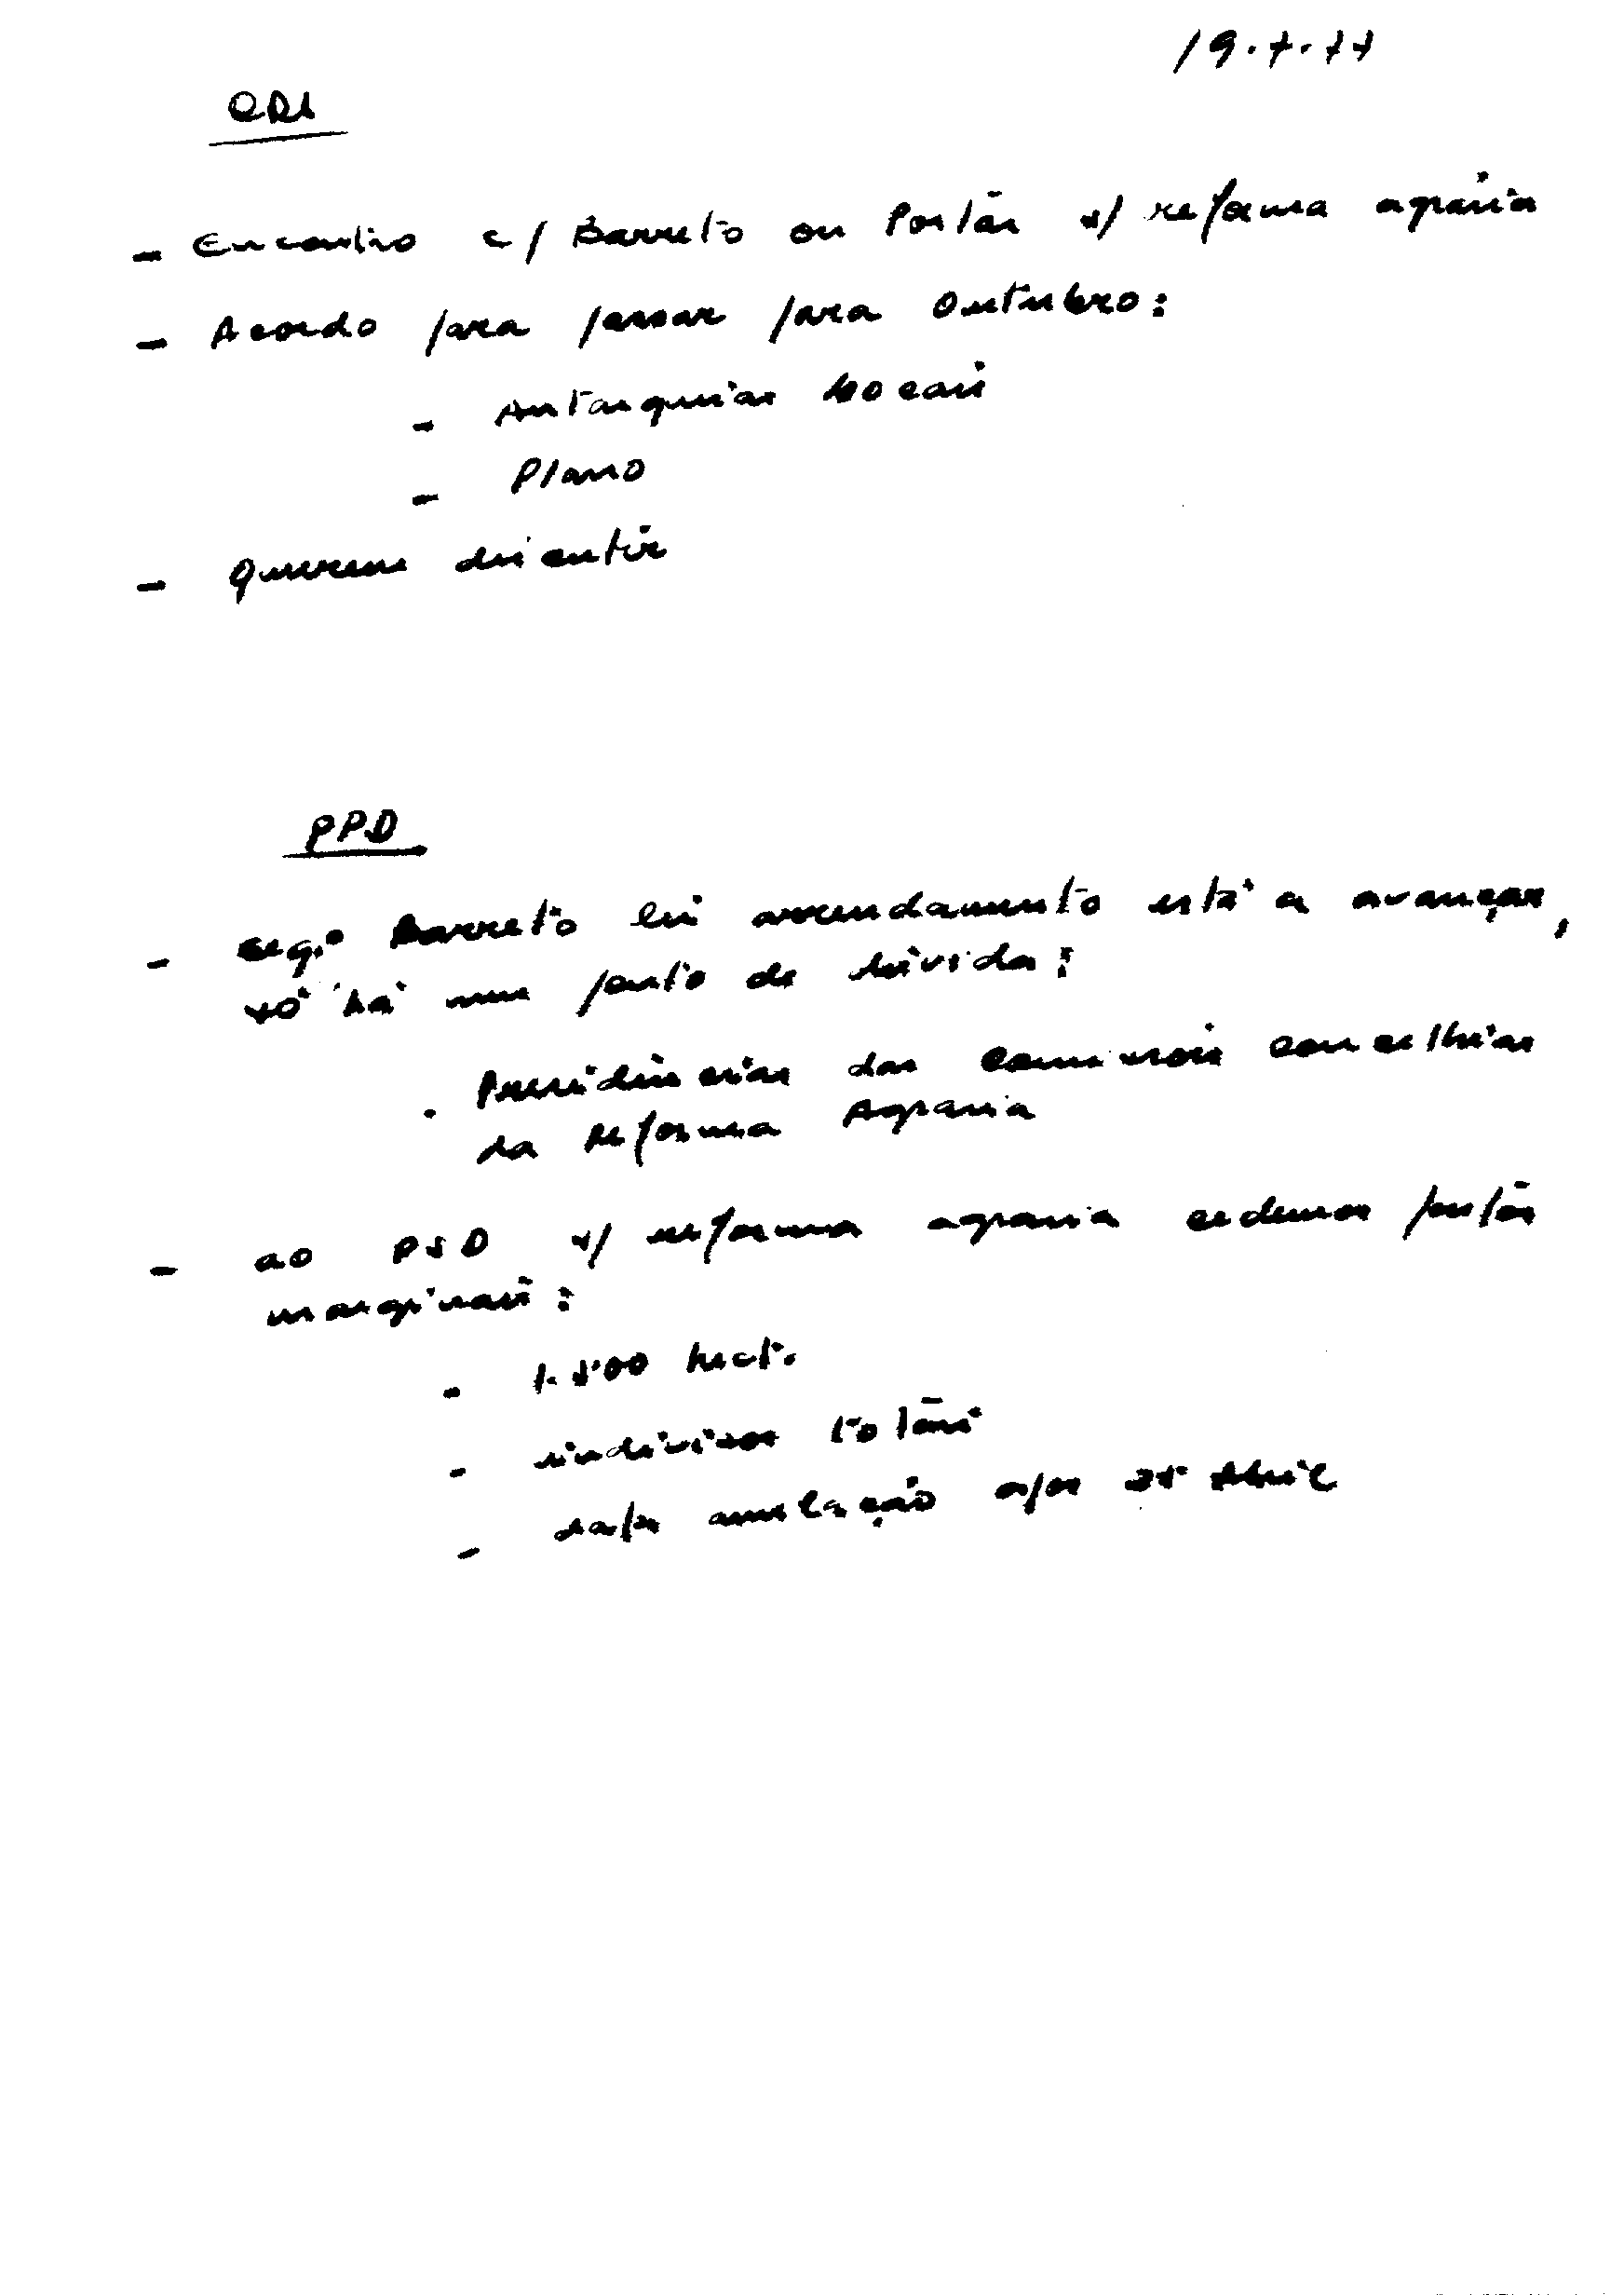 19.7.77
CDS
- Encontro c/ Barreto ou Portas s/ reforma agrária
- Acordo para passar para Outubro:
- Autarquias Locais
- Plano
- Querem discutir
PPD
- Seg.º Barreto lei arrendamento está a avançar,
só há um ponto de dúvida:
. Presidências das comissões concelhias
da Reforma Agrária
- ao PSD s/ reforma agrária cedemos
marginais:
- 1.500 hect.
- indivisos
- anulação após 25 Abril